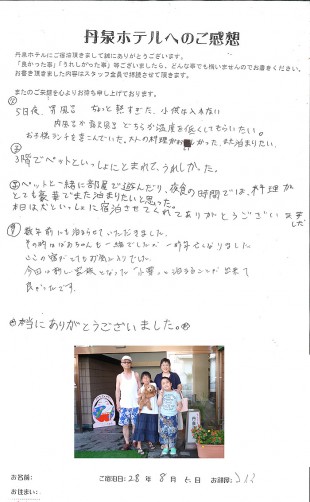 丹泉ホテルへのご感想
丹泉ホテルにご宿泊頂きまして誠にありがとうございます。
「良かった事」「うれしかった事」等ございましたら、どんな事でも構いませんのでお書きください。
お書き頂きました内容はスタッフ全員で拝読させて頂きます。
またのご来館を心よりお待ち申し上げております。
ちょと熱すぎた。小供は入れない
どちらか温度を低くしてもらいたい。
お子様ランチを喜こんでいた。大人の料理が かった。また泊まりたい。
3階でペットといっしょにとまれて、うれしかった。
ペットと一緒に部屋で遊んだり、夜食の時間では、料理が
とても豪華でまた泊まりたいと思った。
本日は犬といっしょに宿泊させてくれてありがとうございました
数年前にも泊まらせていただきました。
その時はばあちゃんも一緒でしたが一昨年亡くなりました
今回は新し家族となった と泊まることが出来て
良かったです。
本当にありがとうございました。
お名前:
ご宿泊日: 28年 8月 日 お部屋:
お住まい: